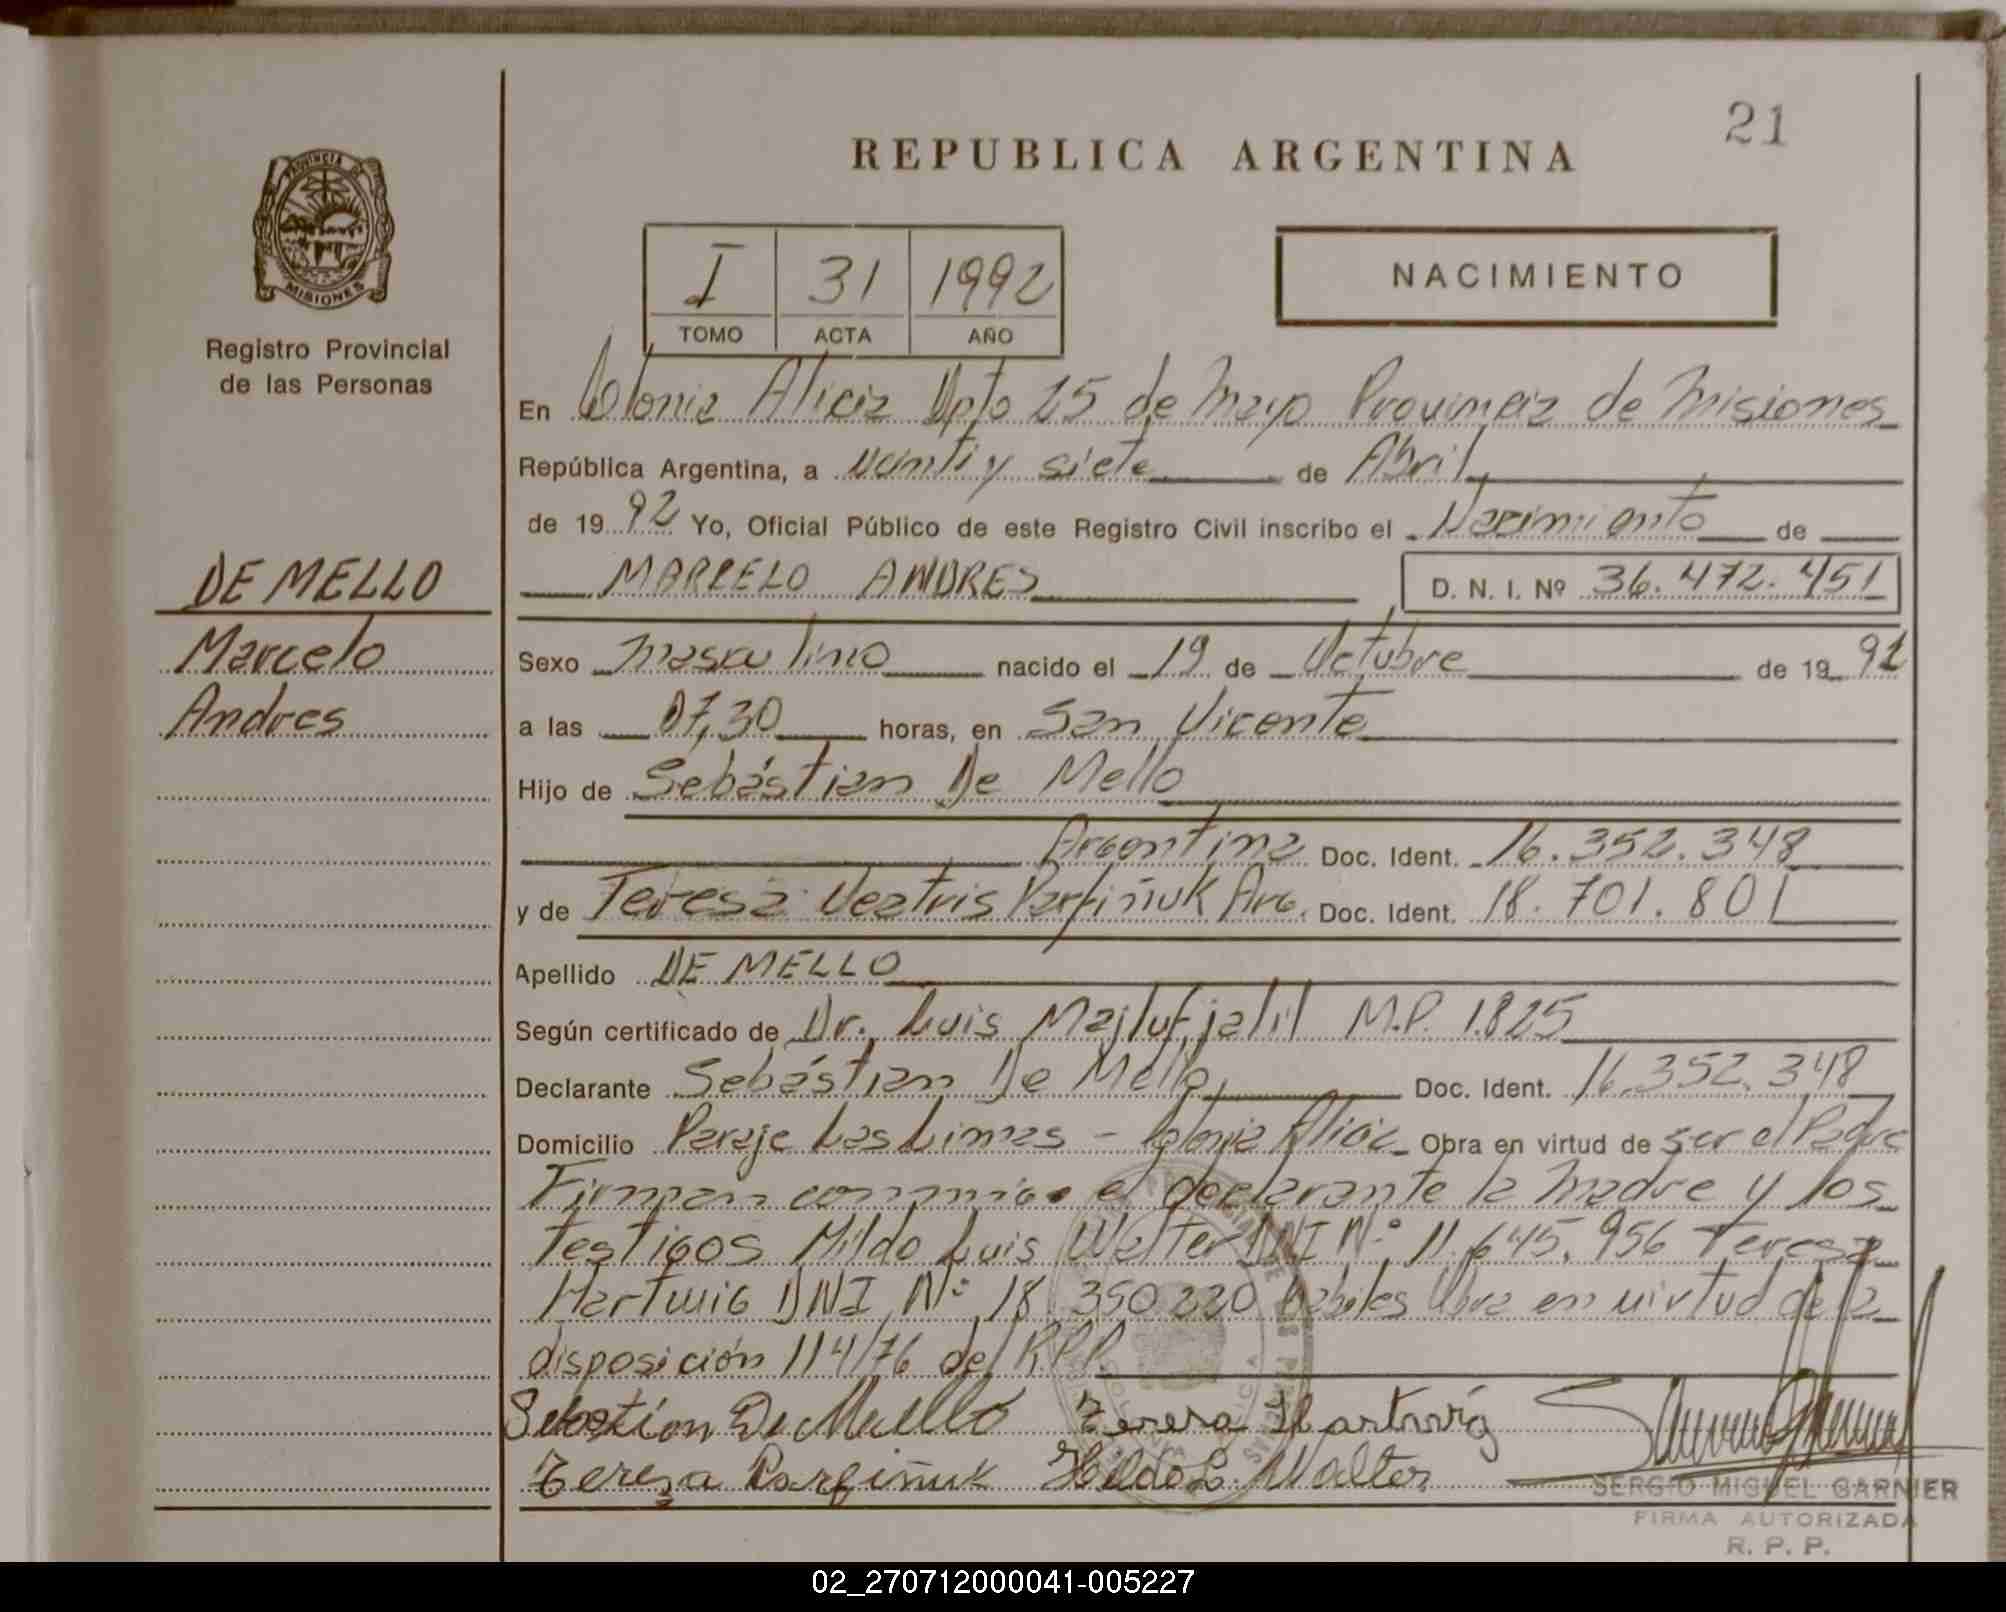 21
REPUBLICA ARGENTINA
PROVINCIA DE
MISIONES
Registro Provincial
de las Personas
I 31 1992
TOMO ACTA AÑO
NACIMIENTO
En Colonia Alicia Dpto 25 de Mayo Provincia de Misiones
República Argentina, a veinti y siete de Abril
de 19 92 Yo, Oficial Público de este Registro Civil inscribo el Nacimiento de
DE MELLO
MARCELO ANDRES D. N. I. Nº 36.472.451
Marcelo
Sexo masculino nacido el 19 de Octubre de 19 91
Andres
a las 07,30 horas, en San Vicente
Hijo de Sebástian De Mello
Argentina Doc. Ident. 16.352.348
y de Teresa Veatris Parfiñuk Arg. Doc. Ident. 18.701.801
Apellido DE MELLO
Según certificado de Dr. Luis Majluf jalil M.P. 1.825
Declarante Sebástian De Mello Doc. Ident. 16.352.348
Domicilio Paraje Las Limas - Colonia Alicia Obra en virtud de ser el Padre
Firman conmigo el declarante la madre y los
testigos Hildo Luis Walter DNI Nº 11.645.956 Teresa
Hartwig DNI Nº 18.350.220 habiles Obra en virtud de la
disposición 114/76 del R.P.P.
Sebastion De Muello Teresa Hartwig
Tereza Parfiñuk Hildo L. Walter
SERGIO MIGUEL GARNIER
FIRMA AUTORIZADA
R. P. P.
02_270712000041-005227